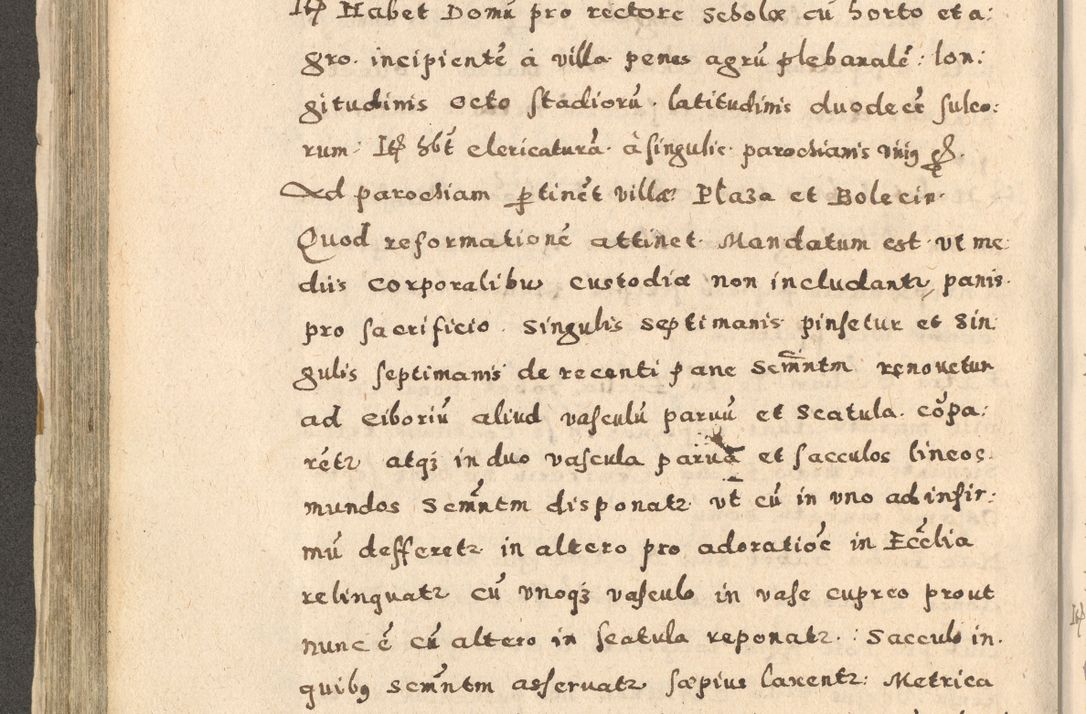 Itẽ Habet Domũ pro rectore scholæ cũ horto et a:
gro. incipientẽ à villa penes agrũ plebanalẽ: lon:
gitudinis octo stadiorũ. latitudinis duodecẽ sulco:
rum. Itẽ hẽt clericaturã. à singulis parochianis unius gß.
Ad parochiam ꝑtinẽt villæ: Plaza et Bolecin.
Quod reformationẽ attinet. Mandatum est. vt me:
diis corporalibus custodiæ non includantr, panis.
pro sacrificio. singulis septimanis pinsetur et sin:
gulis septimanis de recenti pane Scm̃ntm renouetur
ad ciboriũ aliud vasculũ paruũ et scatula. cõpa:
rẽtr atqȝ in duo vascula parua et sacculos lineos.
mundos Scm̃ntm disponatr vt cũ in vno ad infir:
mũ defferetr in altero pro adoratiõe in Ecc̃lia
relinquatr cũ vnoqȝ vasculo in vase cupreo prout
nunc ẽ cũ altero in scatula reponatr. Sacculi in.
quibus scm̃ntm asseruatr sæpius lauentr: Metrica